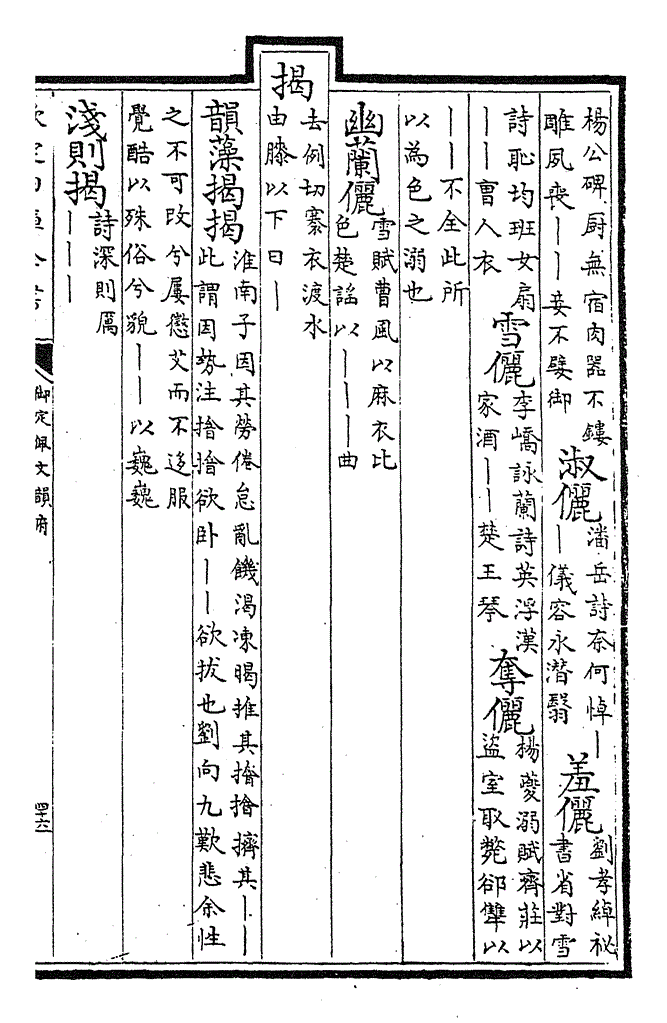 楊公碑厨無宿肉器不鏤
雎夙喪丨丨妾不嬖御
淑儷
潘岳詩奈何悼丨
丨儀容永潛翳
羞儷
劉孝綽祕
書省對雪
詩恥均班女扇
丨丨曹人衣
雪儷
李嶠詠蘭詩英浮漢
家酒丨丨楚王琴
奪儷
楊夔溺賦齊莊以
盜室取斃郤犨以
丨丨不全此所
以為色之溺也
幽蘭儷
雪賦曹風以麻衣比
色楚謡以丨丨丨曲
揭
去例切褰衣渡水
由膝以下曰丨
韻藻揭揭
淮南子因其勞倦怠亂饑渴凍暍推其擠其丨丨
此謂因勢注欲卧丨丨欲拔也劉向九歎悲余性
之不可改兮屢懲艾而不迻服
覺酷以殊俗兮貌丨丨以巍巍
淺則揭
詩深則厲
丨丨丨
御定佩文韻府
四十六